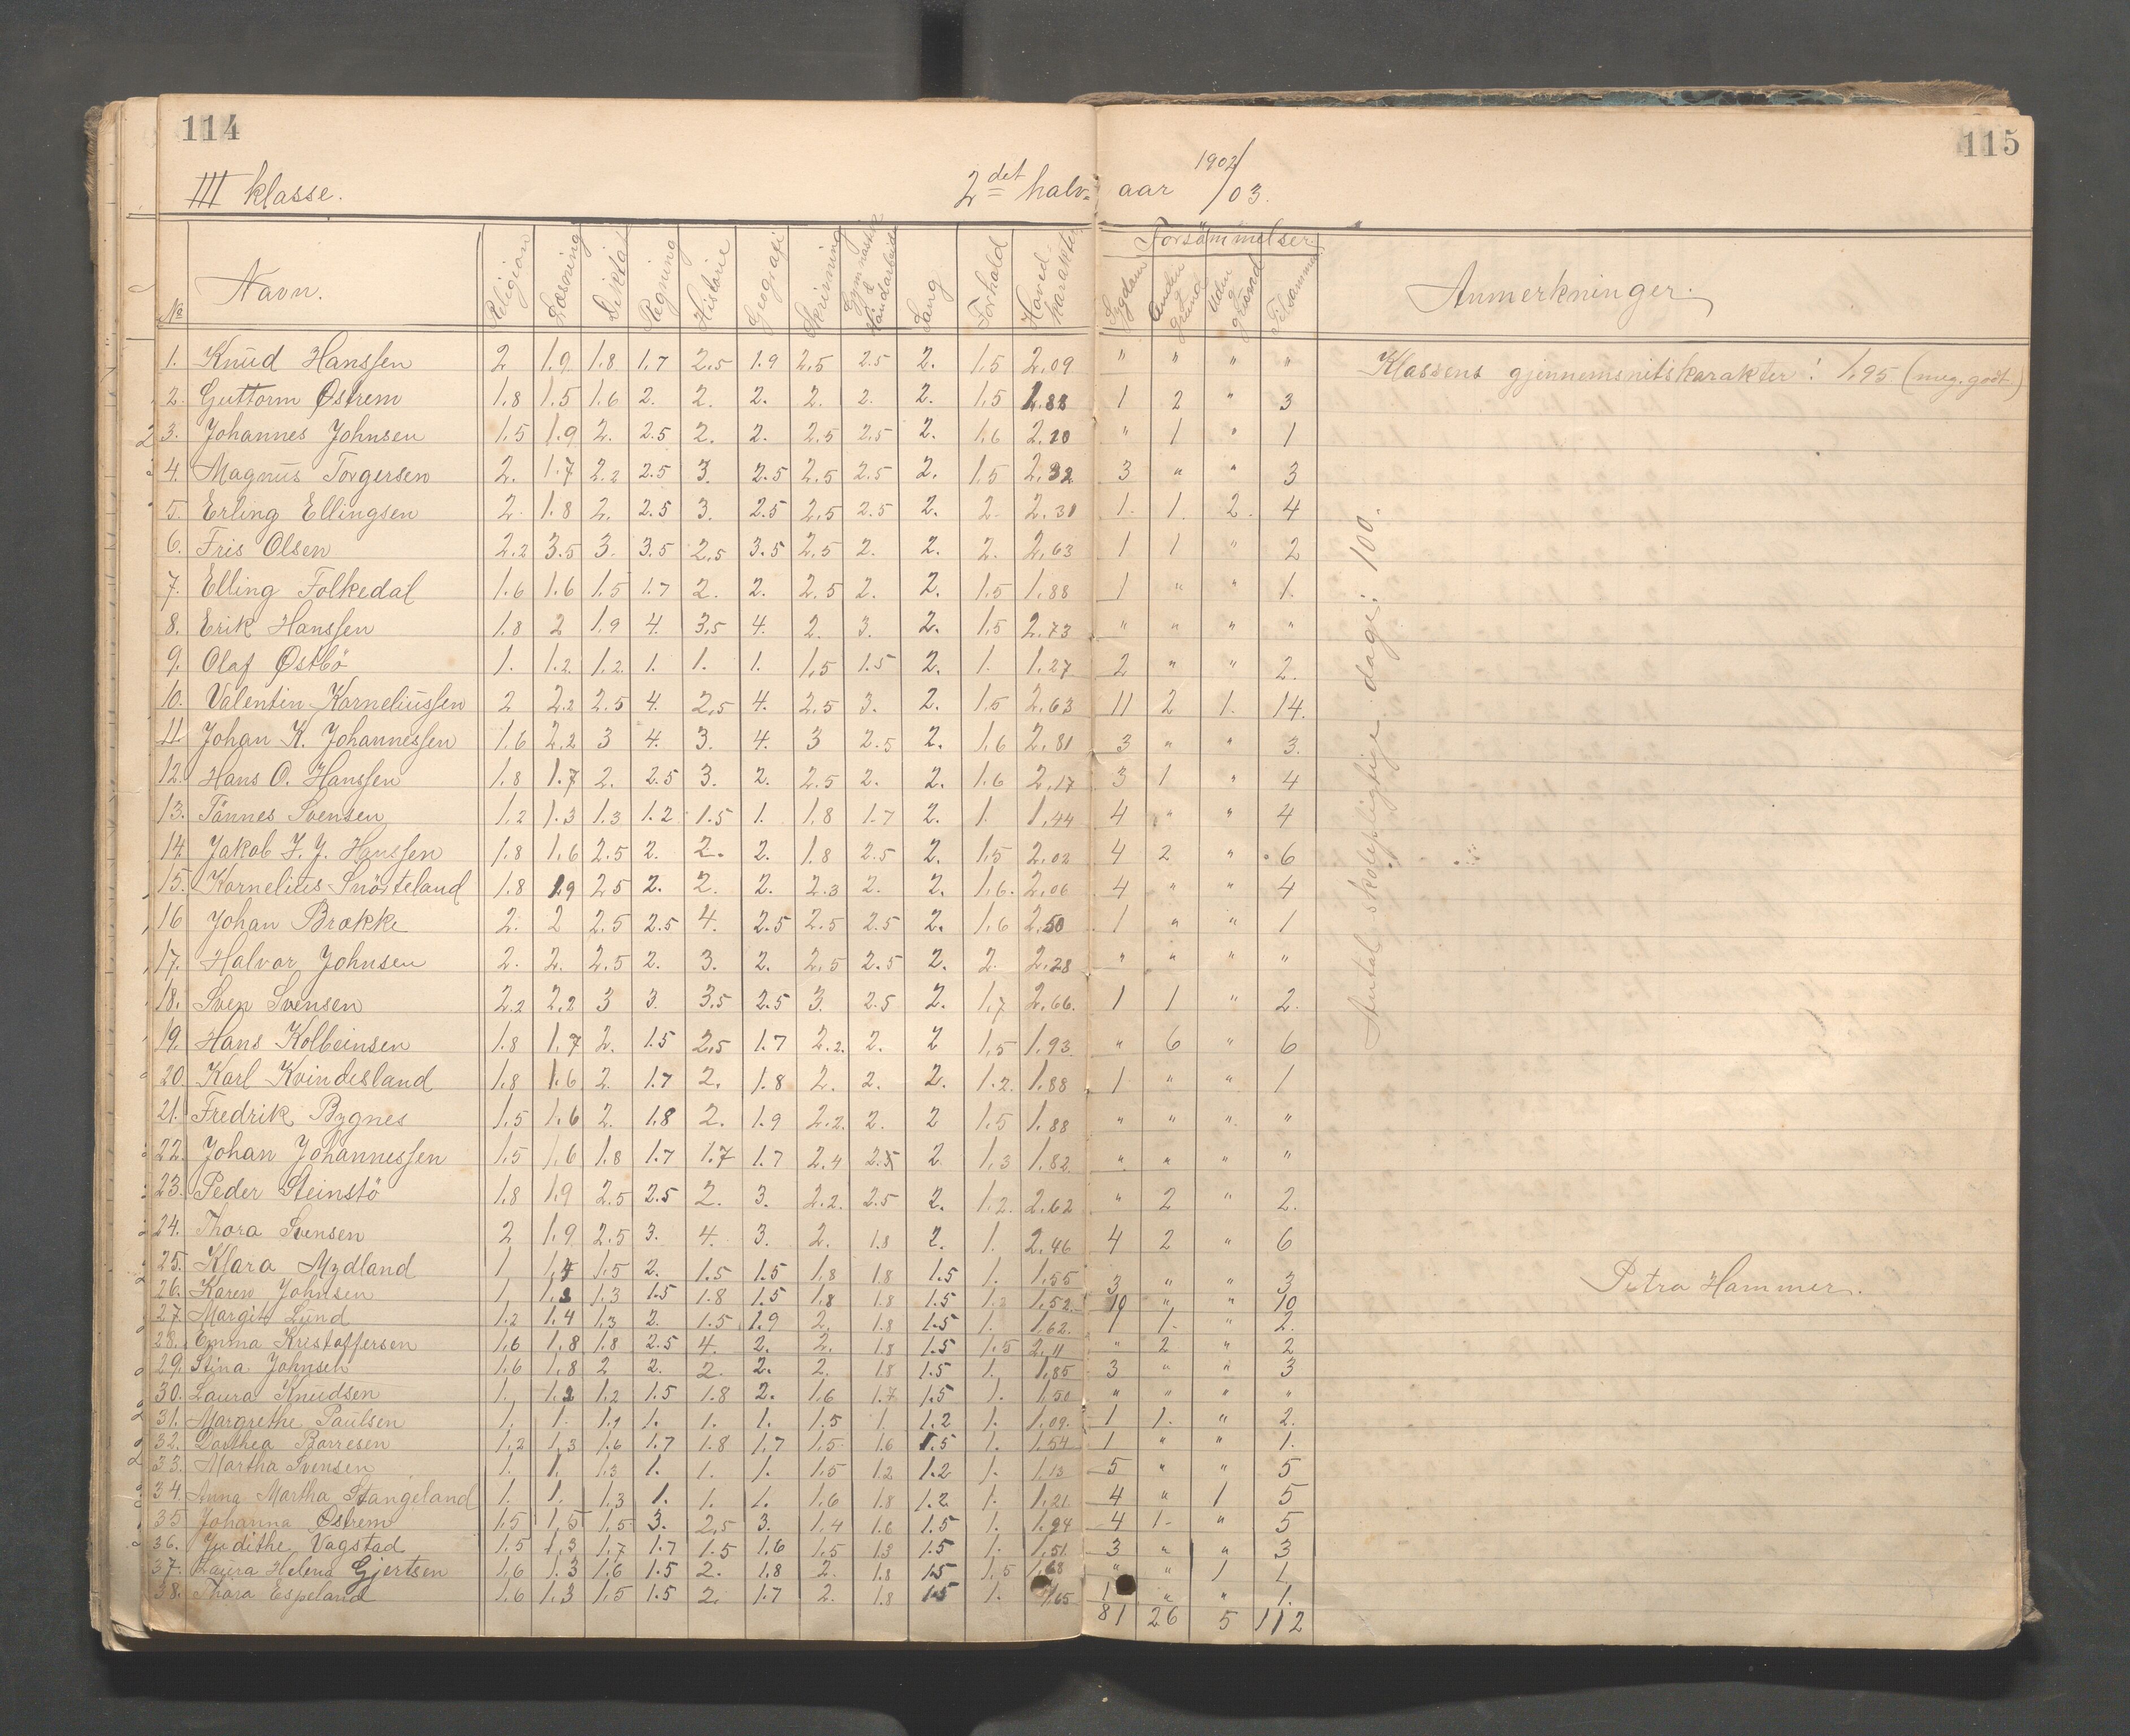 114
115
III klasse.
2det halv= aar 1902/03.
Forsömmelser.
No Navn. Religion Læsning Diktat Regning Historie Geografi Skrivning Gymnastik & Haandarbeide Sang Forhold Hovedkarakter Sygdom Anden grund Uden grund Tilsammen Anmerkninger.
1. Knud Hanssen 2 1.9 1.8 1.7 2.5 1.9 2.5 2.5 2. 1.5 2.09 " " " " Klassens gjennemsnitskarakter: 1,95 (meg. godt.)
2. Guttorm Østrem 1.8 1.5 1.6 2. 2. 2. 2. 2. 2. 1.5 1.88 1 2 " 3
3. Johannes Johnsen 1.5 1.9 2. 2.5 2. 2. 2.5 2.5 2. 1.6 2.20 " 1 " 1
4. Magnus Torgersen 2. 1.7 2.2 2.5 3. 2.5 2.5 2.5 2. 1.5 2.32 3 " " 3
5. Erling Ellingsen 2. 1.8 2. 2.5 3. 2.5 2.5 2.5 2. 2. 2.31 1. 1. 2. 4
6. Fris Olsen 2.2 3.5 3. 3.5 2.5 3.5 2.5 2. 2. 2. 2.63 1 1 " 2
7. Elling Folkedal 1.6 1.6 1.5 1.7 2. 2. 2.5 2. 2. 1.5 1.88 1 " " 1.
8. Erik Hanssen 1.8 2 1.9 4. 3.5 4. 2. 3. 2. 1.5 2.73 " " " "
9. Olaf Østbö 1. 1.2 1.2 1. 1. 1. 1.5 1.5 2. 1. 1.27 2 " " 2.
10. Valentin Korneliussen 2 2.2 2.5 4. 2.5 4. 2.5 3. 2. 1.5 2.63 11 2 1. 14.
11. Johan K. Johannessen 1.6 2.2 3 4. 3. 4. 3 2.5 2. 1.6 2.81 3 " " 3.
12. Hans O. Hanssen 1.8 1.7 2. 2.5 3. 2. 2.5 2. 2. 1.6 2.17 3 1 " 4
13. Tönnes Svensen 1.2 1.3 1.3 1.2 1.5 1. 1.8 1.7 2. 1. 1.44 4 " " 4
14. Jakob J. J. Hanssen 1.8 1.6 2.5 2. 2. 2. 1.8 2.5 2. 1.5 2.02 4 2 " 6
15. Kornelius Snörteland 1.8 1.9 2.5 2. 2. 2. 2.3 2. 2. 1.6. 2.06 4 " " 4
16 Johan Brekke 2. 2 2.5 2.5 4. 2.5 2.5 2.5 2. 1.6 2.50 1 " " 1
17. Halvor Johnsen 2. 2. 2.5 2. 3. 2. 2.5 2.5 2. 2. 2.28 " " " "
18. Sven Svensen 2.2 2.2 3 3. 3.5 2.5 3. 2.5 2. 1.7 2.66. 1 1 " 2.
19. Hans Kolbeinsen 1.8 1.7 2. 1.5 2.5 1.7 2.2. 2. 2 1.5 1.93. " 6 " 6
20. Karl Kvindesland 1.8 1.6 2. 1.7 2. 1.8 2. 2. 2. 1.2. 1.88 1 " " 1
21. Fredrik Bygnes 1.5 1.6 2. 1.8 2. 1.9 2.2. 2. 2 1.5 1.88 " " " "
22. Johan Johannessen 1.5 1.6 1.8 1.7 1.7 1.7 2.4 2.5 2. 1.3 1.82. " " " "
23. Peder Steinstö 1.8 1.9 2.5 2.5 2. 3. 2.2. 2.5 2. 1.2. 2.62 " 2 " 2.
24. Thora Svensen 2 1.9 2.5 3. 4. 3. 2. 1.8 2. 1. 2.46 4 2 " 6
25. Klara Mydland 1 1.4 1.5 2. 1.5 1.5 1.8 1.8 1.5 1. 1.55 3 " " 3
26. Karen Johnsen 1. 1.3 1.3 1.5 1.8 1.5 1.8 1.8 1.5 1.2 1.52. 10 " " 10
27. Margit Lund 1.2 1.4 1.3 2. 1.5 1.9 2. 1.8 1.5 1. 1.62. 1 1. " 2.
28. Emma Kristoffersen 1.6 1.8 1.8 2.5 4. 2. 2. 1.8 1.5 1.5 2.11 " 2 " 2
29. Stina Johnsen 1.6 1.8 2 2. 2. 2. 2. 1.8 1.5 1. 1.85 3 " " 3
30. Laura Knudsen 1. 1.2 1.2 1.5 1.8 2. 1.6 1.7 1.5 1. 1.50 " " " "
31. Margrethe Paulsen 1. 1. 1.1 1. 1. 1. 1.5 1. 1.2 1. 1.09. 1 1. " 2.
32. Dorthea Borresen 1.2 1.3 1.6 1.7 1.8 1.7 1.5 1.6 1.5 1. 1.54 1 " " 1.
33. Martha Svensen 1. 1. 1.3 1. 1. 1. 1.5 1.2 1.2 1. 1.13 5 " " 5
34. Anna Martha Stangeland 1. 1. 1.3 1. 1. 1. 1.6 1.8 1.2 1. 1.21. 4 " 1 5
35 Johanna Østrem 1.5 1.5 1.5 3. 2.5 3. 1.4 1.6 1.5 1. 1.94 4 1. " 5
36. Judithe Vagstad 1.5 1.3 1.7 1.7 1.5 1.6 1.5 1.3 1.5 1. 1.51. 3 " " 3
37. Laura Helena Gjertsen 1.6 1.3 1.6 1.5 2. 1.8 2. 1.8 1.5 1.5 1.68 " " 1 1.
38. Thora Espeland 1.6 1.3 1.5 1.5 2. 1.7 2. 1.8 1.5 1. 1.65 1 " " 1.
81 26 5 112
Antal skolepligtige dage: 100.
Petra Hammer.